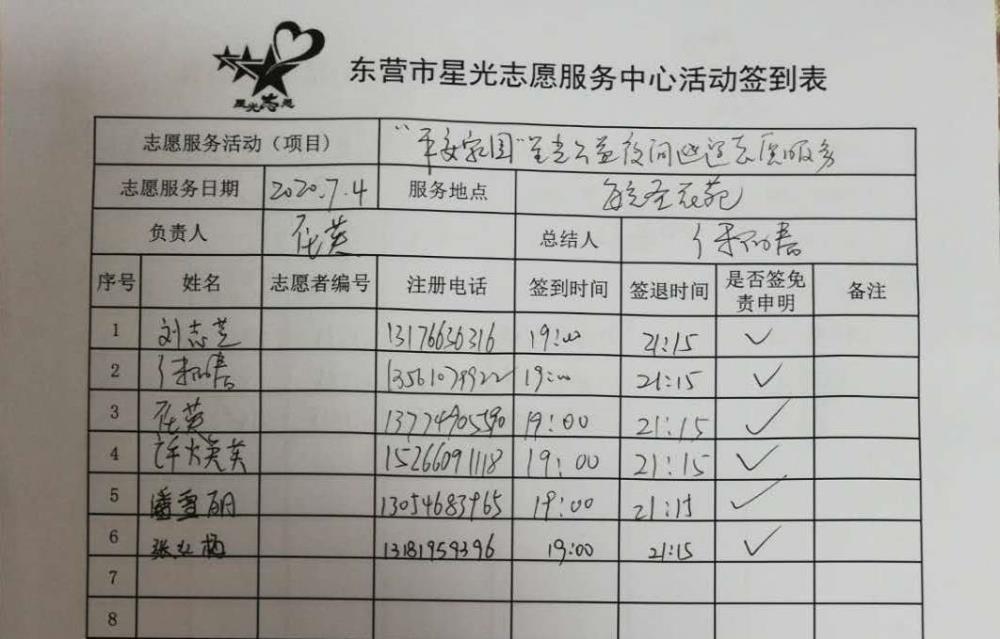 星光志愿
东营市星光志愿服务中心活动签到表
志愿服务活动（项目） “平安家园”星光公益夜间巡逻志愿服务
志愿服务日期 2020.7.4 服务地点
负责人 英 总结人
序号 姓名 志愿者编号 注册电话 签到时间 签退时间 是否签免责申明 备注
1 刘志芝 13176636316 19:00 21:15 ✓
2 13561079922 19:00 21:15 ✓
3 英 13774905590 19:00 21:15 ✓
4 许火英 15266091118 19:00 21:15 ✓
5 潘雪丽 13054683965 19:00 21:15 ✓
6 张红梅 13181959396 19:00 21:15 ✓
7
8